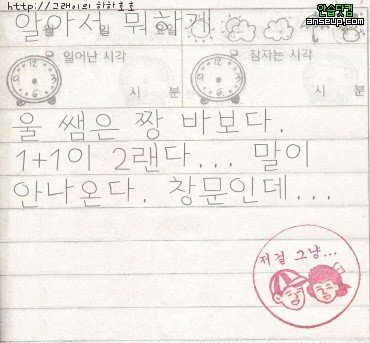 http://그래이의 하하호호
안습닷컴
anseup.com
알아서 뭐하게
월 일 요일
일어난 시각 잠자는 시각
시 분 시 분
울 쌤은 짱 바보다.
1+1이 2랜다... 말이
안나온다. 창문인데...
저걸 그냥...